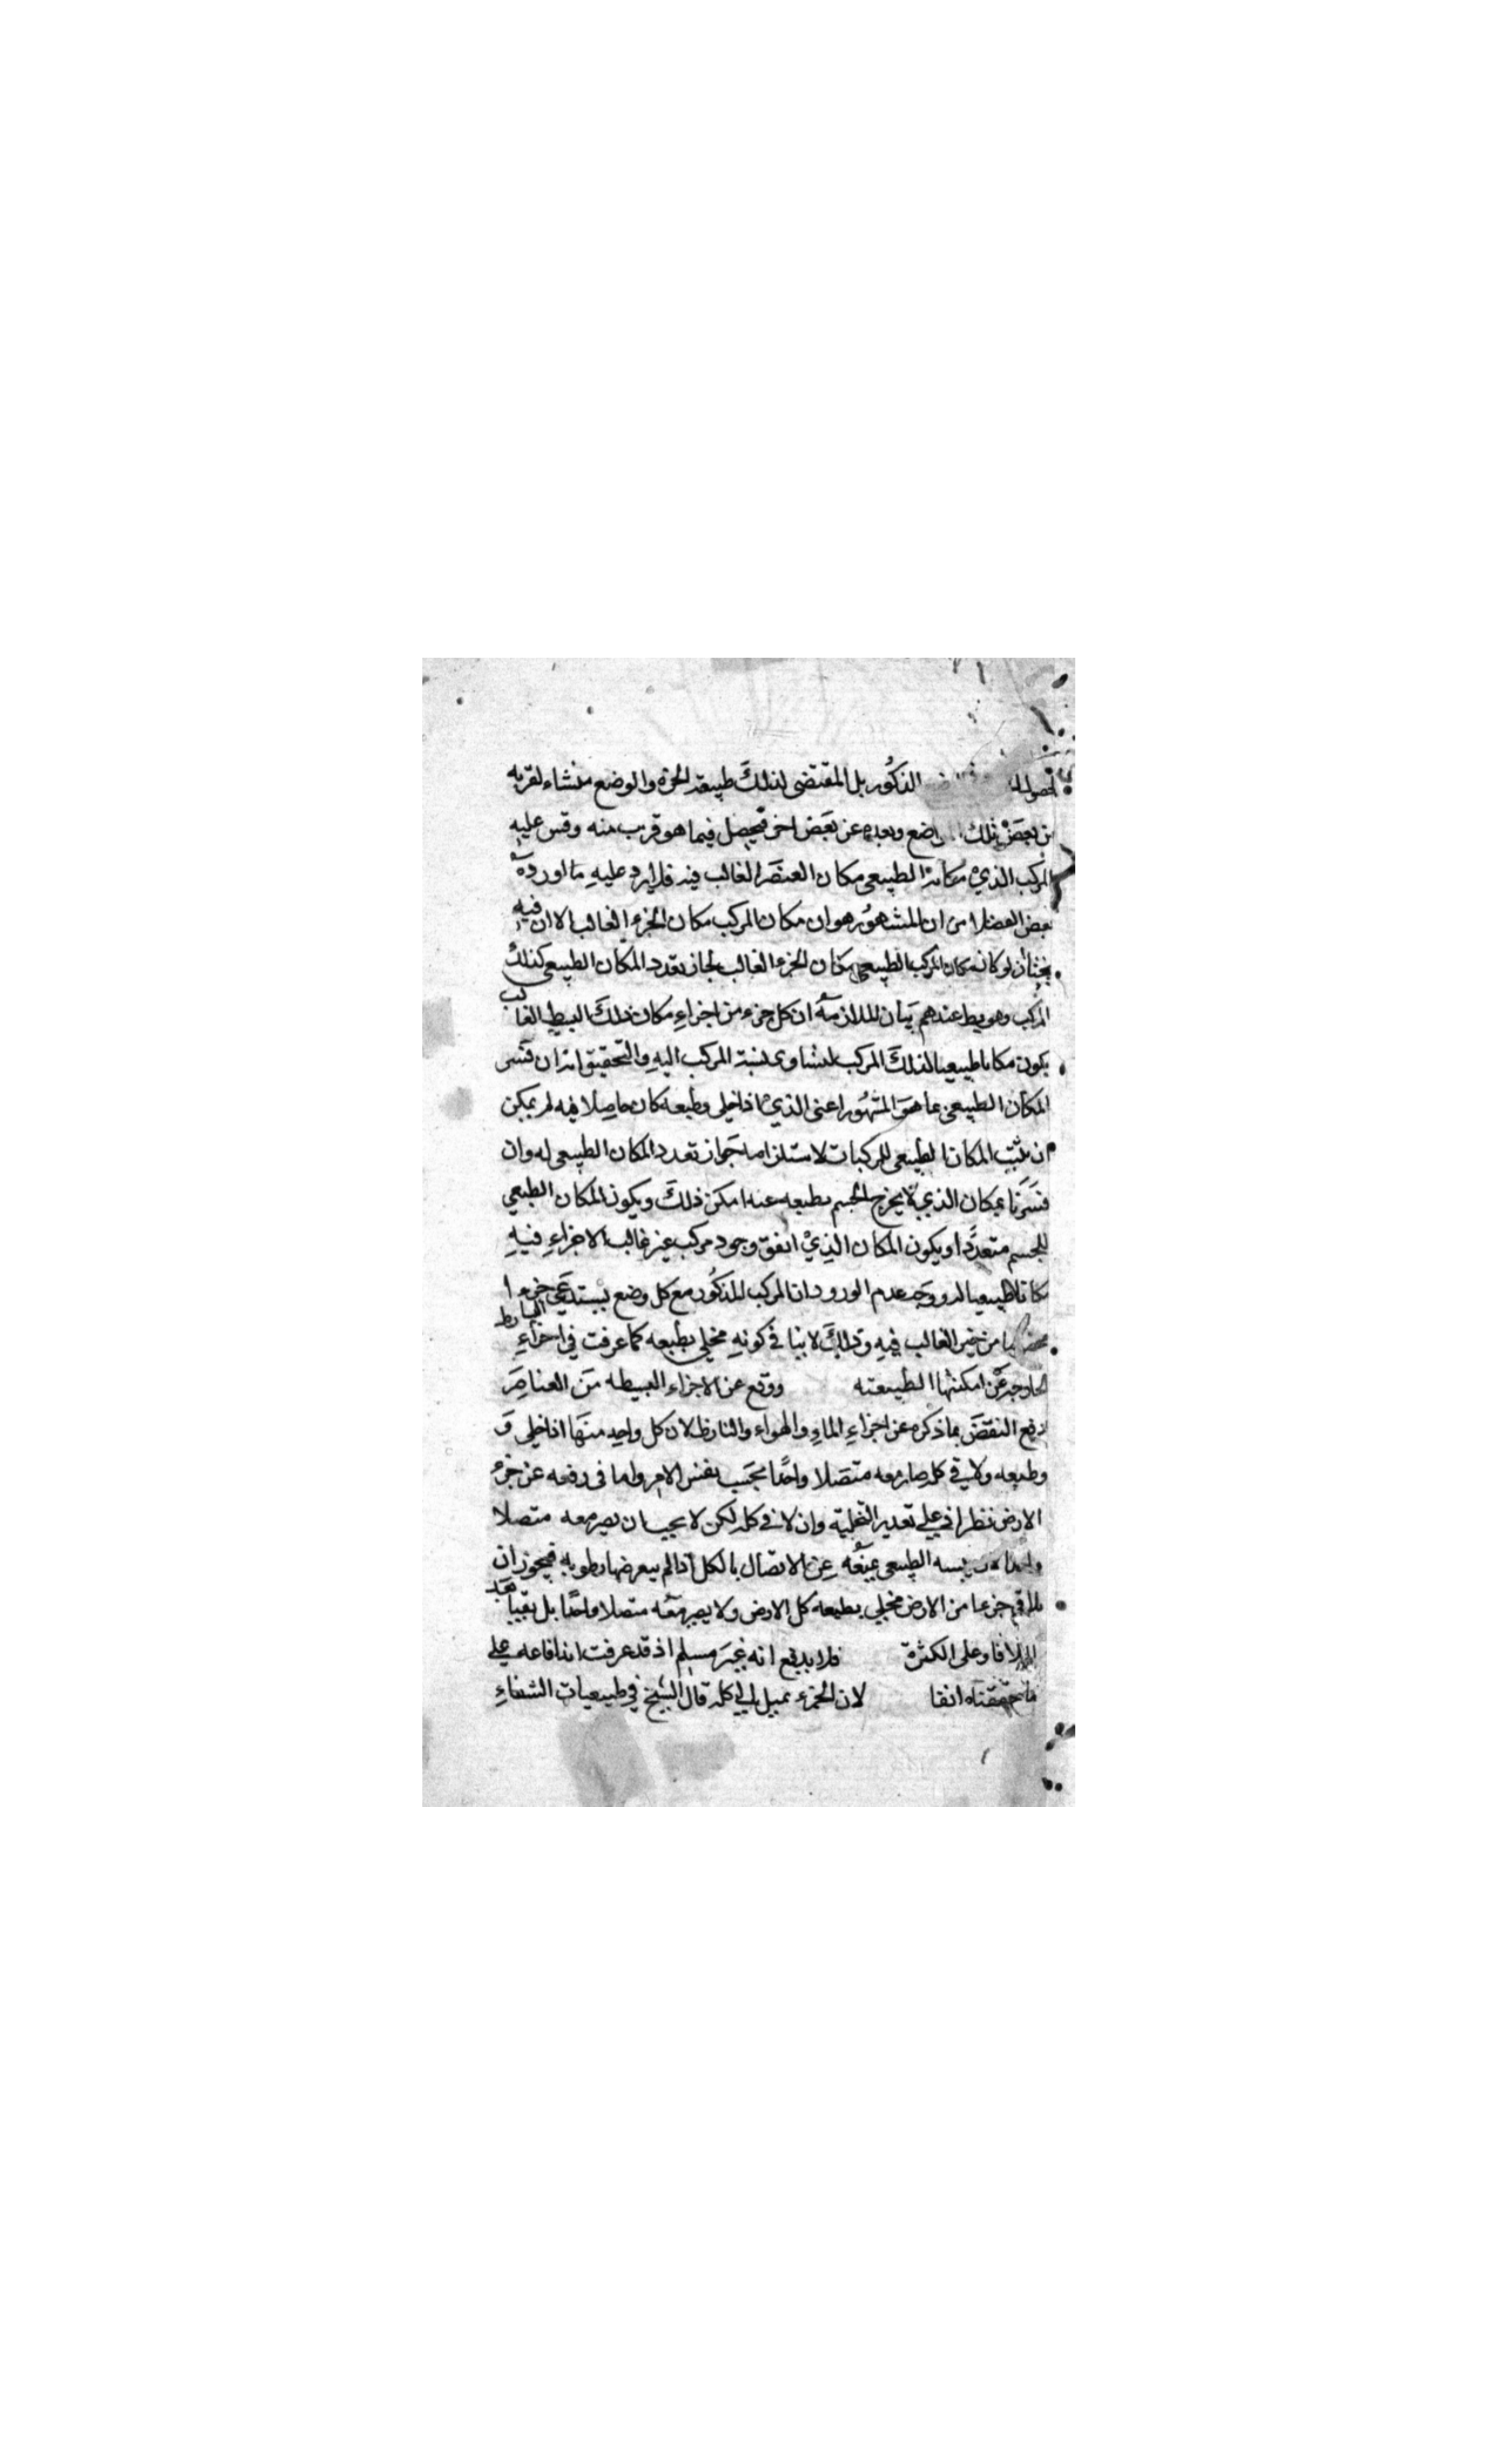 لحصوله الذكور بل المقتضى لذلك طبيعة الجزء والوضع منشاء لقربه
من بعض ذلك اضع وبعده عن بعض اخر فيحصل فيما هو قريب منه وقس عليه
المركب الذي مكانه الطبيعى مكان العنصر الغالب فيه فلا يرد عليه ما اورده
بعض الفضلا من ان المشهور هو ان مكان المركب مكان الجزء الغالب الا ان فيه
بحثا لو كان مكان المركب الطبيعى مكان الجزء الغالب لجاز تعدد المكان الطبيعى كذلك
المركب وهو بط عندهم بيان الملازمة ان كل جزء من اجزاء مكان ذلك البسيط الغالب
يكون مكانا طبيعيا لذلك المركب لتساوى نسبة المركب اليه والتحقيق انه ان فسر
المكان الطبيعى بما هو المشهور اعنى الذي اذا خلى وطبعه كان حاصلا فيه لم يمكن
ان يثبت المكان الطبيعى للمركبات لاستلزامه جواز تعدد المكان الطبيعى له وان
فسرنا بمكان الذي لا يخرج الجسم بطبعه عنه امكن ذلك ويكون المكان الطبعي
للجسم متعددا ويكون المكان الذي اتفق وجود مركب غير غالب الاجزاء فيه
مكانا طبيعيا له ووجه عدم الورود ان المركب المذكور مع كل وضع يستدعى جزءا
من حيز الغالب فيه وذلك لا ينافى كونه مخلى بطبعه كما عرفت في اجزاء البسايط
الخارجه عن امكنتها الطبيعته ووقع عن الاجزاء البسيطه من العناصر
دفع النقض بما ذكره عن اجزاء الماء والهواء والنار ظ لان كل واحد منها اذا خلى و
وطبعه ولاقى كله صار معه متصلا واحدا بحسب نفس الامر واما فى دفعه عن جزء
الارض نظر اذ هي على تقدير التخلية وان لاقى كله لكن لا يجب ان يصير معه متصلا
واحدا يبسه الطبيعى يمنعه عن الاتصال بالكل اذا لم يعرضها رطوبة فيجوز ان
يلاقى جزءا من الارض مخلى بطبعه كل الارض ولا يصير معه متصلا واحدا بل بقيا بعد
الملاقاة على الكثرة فلا يدفع انه غير مسلم اذ قد عرفت انفا على
ما حققناه انفا لان الجزء يميل الى كله قال الشيخ في طبيعيات الشفاء